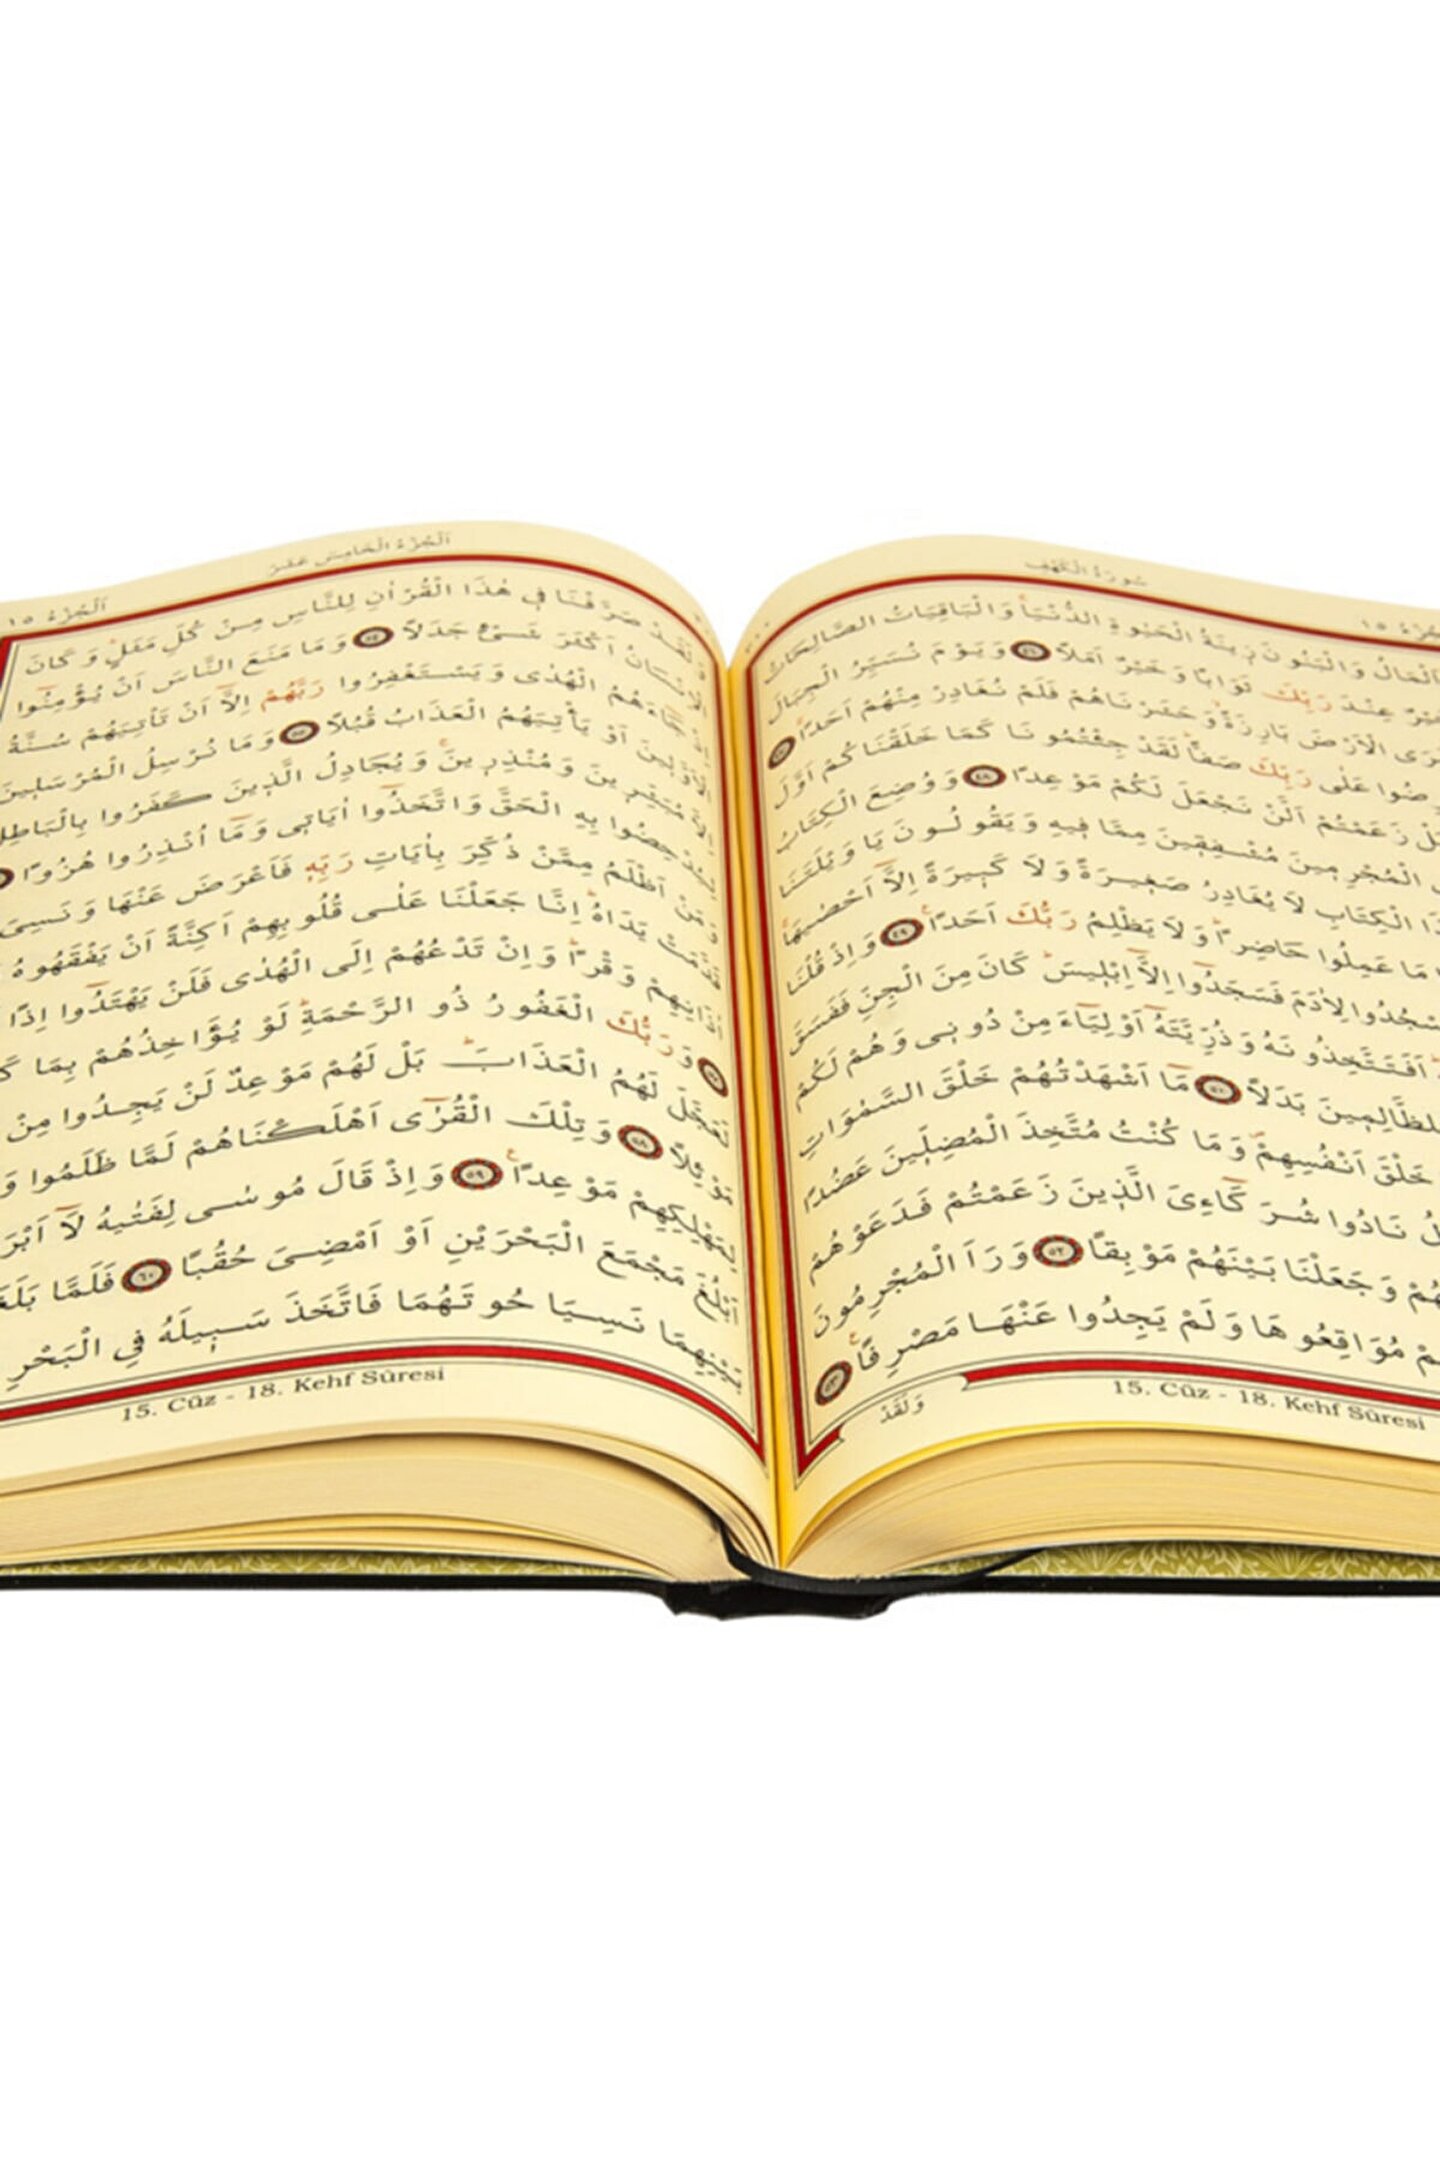 سُورَةُ الْكَهْفِ
اَلْمَالُ وَالْبَنُونَ زٖينَةُ الْحَيٰوةِ الدُّنْيَاۚ وَالْبَاقِيَاتُ الصَّالِحَاتُ
عِنْدَ رَبِّكَ ثَوَابًا وَخَيْرٌ اَمَلاً ﴿٤٦﴾ وَيَوْمَ نُسَيِّرُ الْجِبَالَ
الْاَرْضَ بَارِزَةًۙ وَحَشَرْنَاهُمْ فَلَمْ نُغَادِرْ مِنْهُمْ اَحَدًاۚ ﴿٤٧﴾
عَلٰى رَبِّكَ صَفًّاۜ لَقَدْ جِئْتُمُونَا كَمَا خَلَقْنَاكُمْ اَوَّلَ
زَعَمْتُمْ اَلَّنْ نَجْعَلَ لَكُمْ مَوْعِدًا ﴿٤٨﴾ وَوُضِعَ الْكِتَابُ
الْمُجْرِمٖينَ مُشْفِقٖينَ مِمَّا فٖيهِ وَيَقُولُونَ يَا وَيْلَتَنَا
الْكِتَابِ لاَ يُغَادِرُ صَغٖيرَةً وَلاَ كَبٖيرَةً اِلَّٓا اَحْصٰيهَاۚ
مَا عَمِلُوا حَاضِرًاۜ وَلاَ يَظْلِمُ رَبُّكَ اَحَدًاۚ ﴿٤٩﴾ وَاِذْ قُلْنَا
لِاٰدَمَ فَسَجَدُٓوا اِلَّٓا اِبْلٖيسَۜ كَانَ مِنَ الْجِنِّ فَفَسَقَ
اَفَتَتَّخِذُونَهُ وَذُرِّيَّتَهُٓ اَوْلِيَٓاءَ مِنْ دُونٖى وَهُمْ لَكُمْ
لِلظَّالِمٖينَ بَدَلاً ﴿٥٠﴾ مَٓا اَشْهَدْتُهُمْ خَلْقَ السَّمٰوَاتِ
خَلْقَ اَنْفُسِهِمْۖ وَمَا كُنْتُ مُتَّخِذَ الْمُضِلّٖينَ عَضُدًا
نَادُوا شُرَكَٓاءِىَ الَّذٖينَ زَعَمْتُمْ فَدَعَوْهُمْ
وَجَعَلْنَا بَيْنَهُمْ مَوْبِقًا ﴿٥٢﴾ وَرَاَ الْمُجْرِمُونَ
مُوَاقِعُوهَا وَلَمْ يَجِدُوا عَنْهَا مَصْرِفًاۚ ﴿٥٣﴾
وَلَقَدْ
15. Cüz - 18. Kehf Sûresi
اَلْجُزْءُ ١٥
اَلْجُزْءُ الْخَامِسَ عَشَرَ
وَلَقَدْ صَرَّفْنَا فٖى هٰذَا الْقُرْاٰنِ لِلنَّاسِ مِنْ كُلِّ مَثَلٍۜ وَكَانَ
الْاِنْسَانُ اَكْثَرَ شَىْءٍ جَدَلاً ﴿٥٤﴾ وَمَا مَنَعَ النَّاسَ اَنْ يُؤْمِنُٓوا
اِذْ جَٓاءَهُمُ الْهُدٰى وَيَسْتَغْفِرُوا رَبَّهُمْ اِلَّٓا اَنْ تَأْتِيَهُمْ سُنَّةُ
الْاَوَّلٖينَ اَوْ يَأْتِيَهُمُ الْعَذَابُ قُبُلاً ﴿٥٥﴾ وَمَا نُرْسِلُ الْمُرْسَلٖينَ
اِلَّا مُبَشِّرٖينَ وَمُنْذِرٖينَۚ وَيُجَادِلُ الَّذٖينَ كَفَرُوا بِالْبَاطِلِ
لِيُدْحِضُوا بِهِ الْحَقَّ وَاتَّخَذُٓوا اٰيَاتٖى وَمَٓا اُنْذِرُوا هُزُوًا
وَمَنْ اَظْلَمُ مِمَّنْ ذُكِّرَ بِاٰيَاتِ رَبِّهٖ فَاَعْرَضَ عَنْهَا وَنَسِىَ
قَدَّمَتْ يَدَاهُۜ اِنَّا جَعَلْنَا عَلٰى قُلُوبِهِمْ اَكِنَّةً اَنْ يَفْقَهُوهُ
اٰذَانِهِمْ وَقْرًاۜ وَاِنْ تَدْعُهُمْ اِلَى الْهُدٰى فَلَنْ يَهْتَدُٓوا اِذًا
وَرَبُّكَ الْغَفُورُ ذُو الرَّحْمَةِۜ لَوْ يُؤَاخِذُهُمْ بِمَا
لَعَجَّلَ لَهُمُ الْعَذَابَۜ بَلْ لَهُمْ مَوْعِدٌ لَنْ يَجِدُوا مِنْ
مَوْئِلاً ﴿٥٨﴾ وَتِلْكَ الْقُرٰٓى اَهْلَكْنَاهُمْ لَمَّا ظَلَمُوا
لِمَهْلِكِهِمْ مَوْعِدًاۚ ﴿٥٩﴾ وَاِذْ قَالَ مُوسٰى لِفَتٰيهُ لَٓا
اَبْلُغَ مَجْمَعَ الْبَحْرَيْنِ اَوْ اَمْضِىَ حُقُبًا ﴿٦٠﴾ فَلَمَّا
بَيْنِهِمَا نَسِيَا حُوتَهُمَا فَاتَّخَذَ سَبٖيلَهُ فِى الْبَحْرِ
15. Cüz - 18. Kehf Sûresi